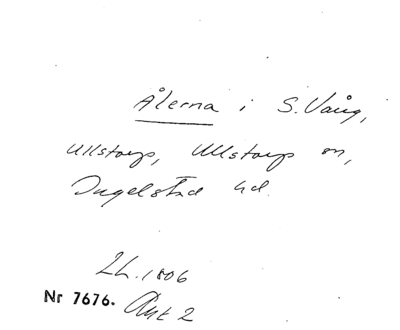 Ålerna i S. Vång,
Ullstorp, Ullstorps sn,
Ingelstad hd.
LL. 1806
Nr 7676. Akt 2